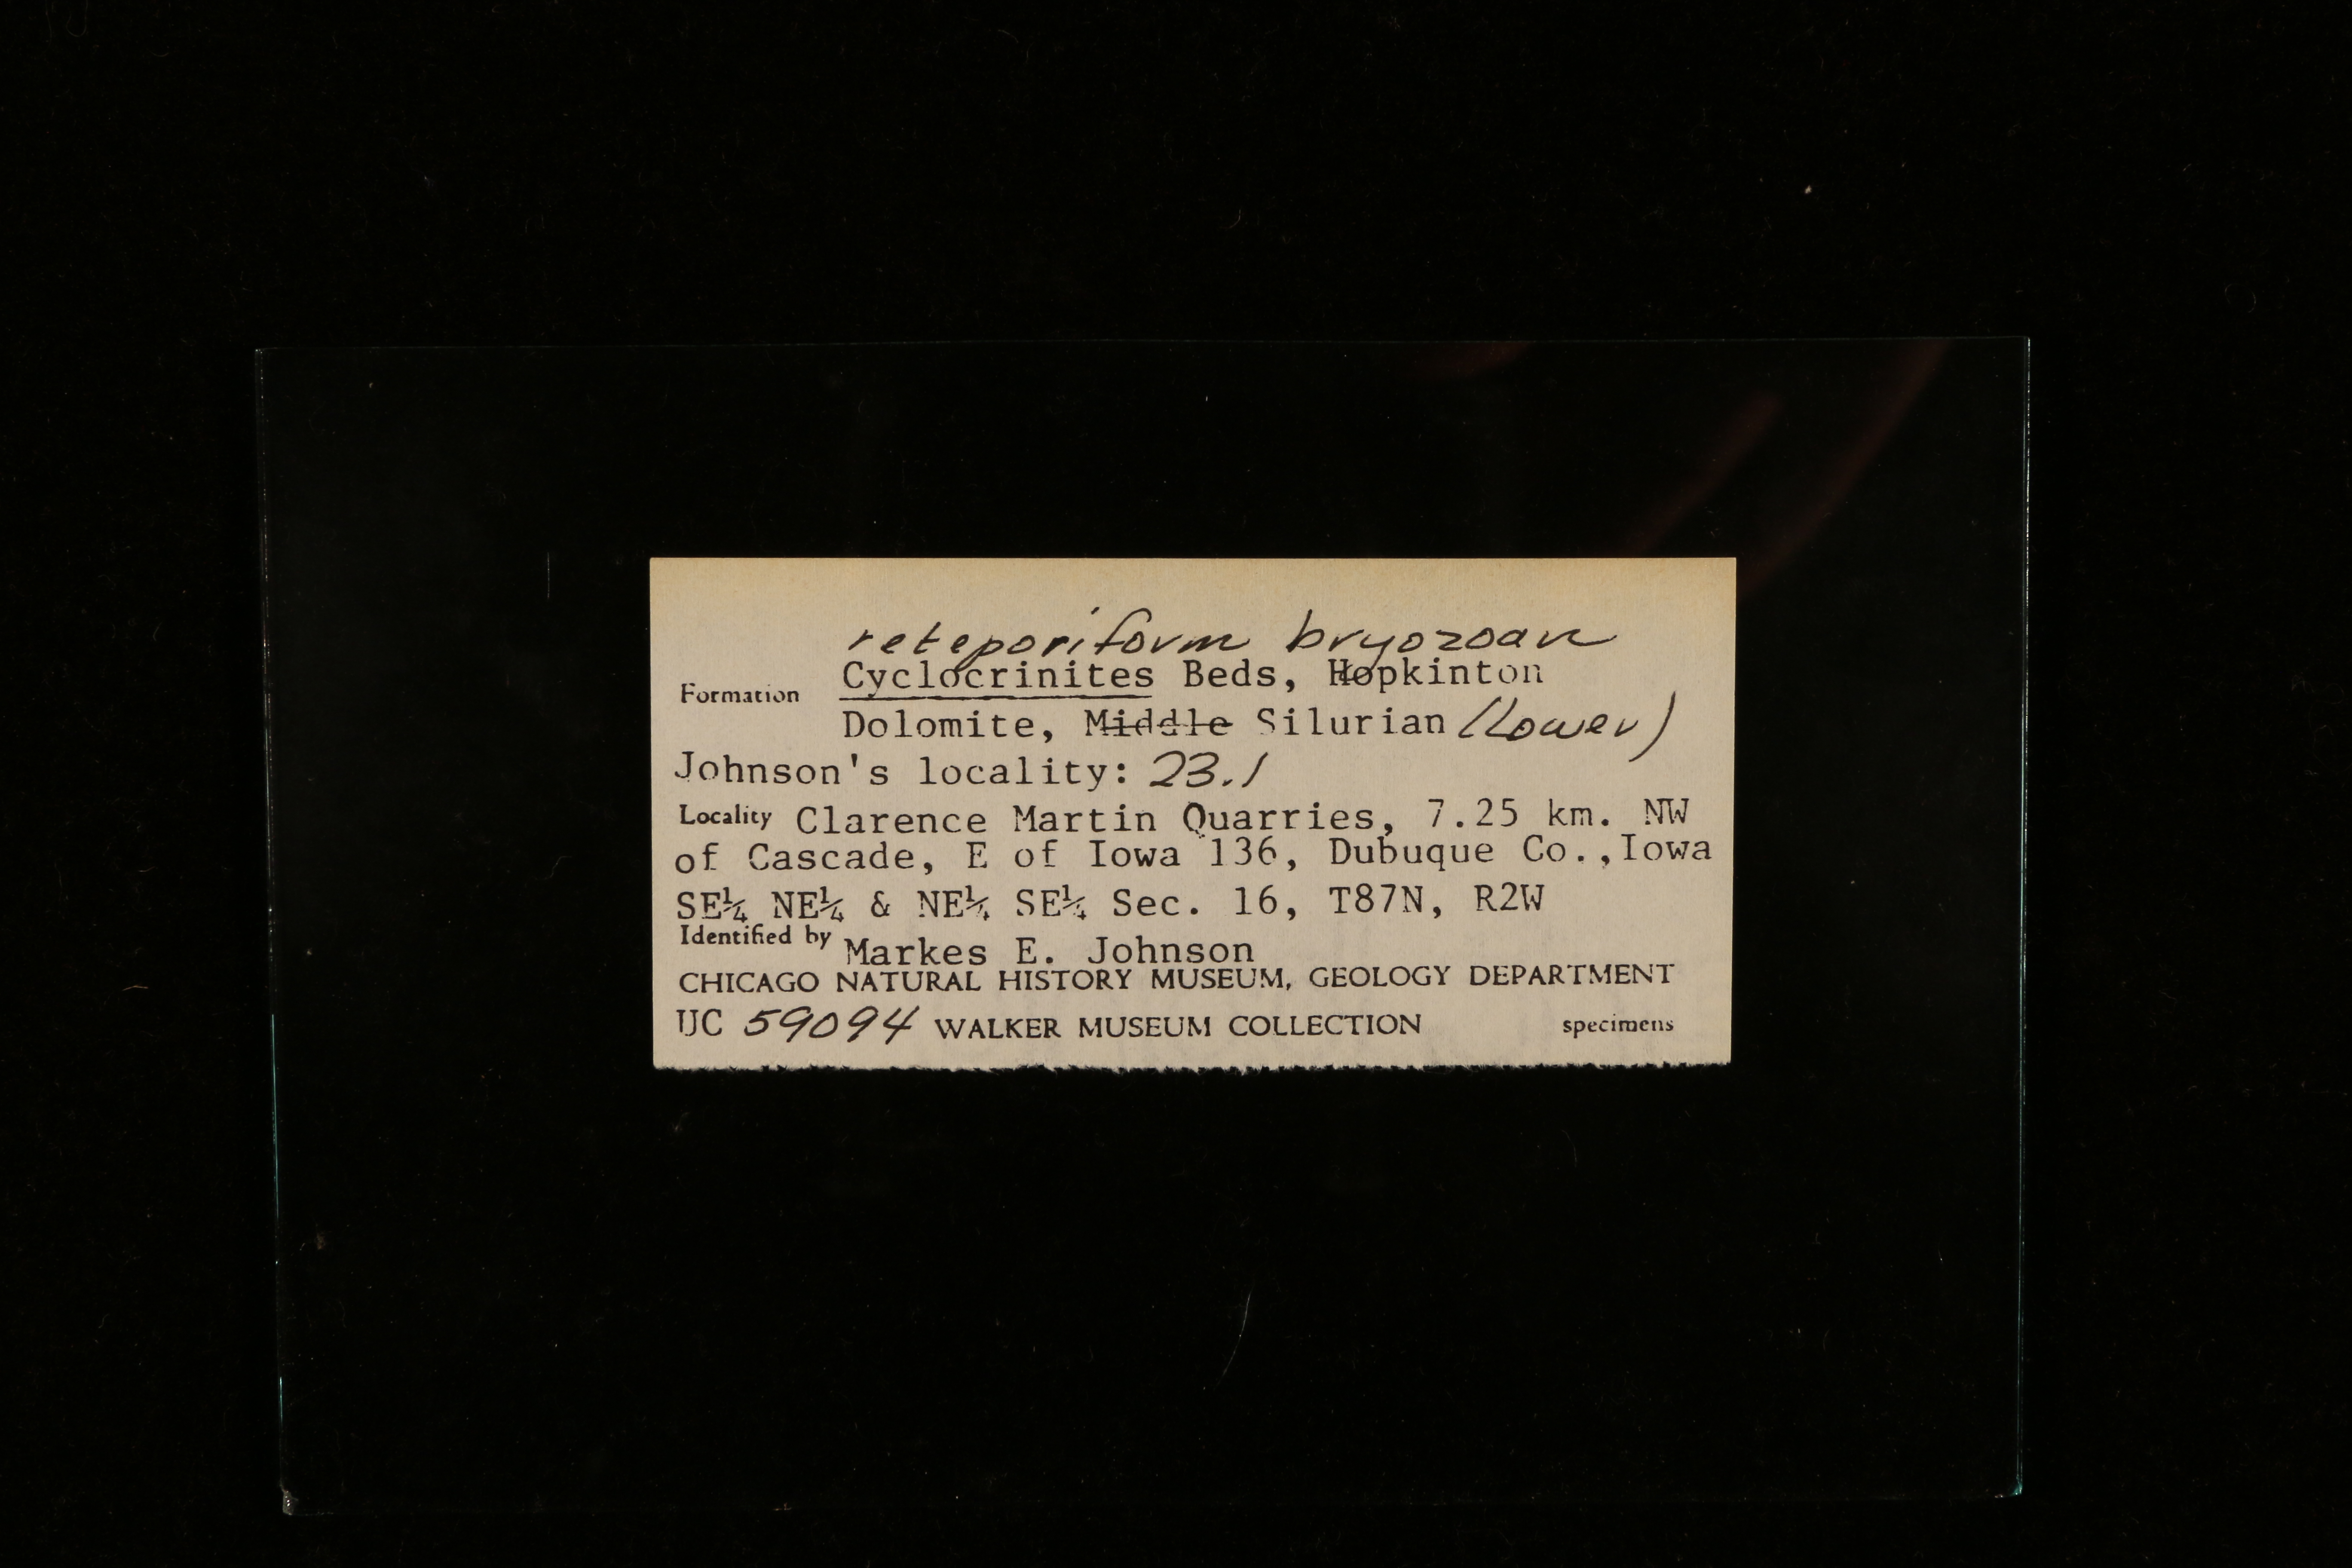 reteporiform bryozoan
Formation Cyclocrinites Beds, Hopkinton
Dolomite, Middle Silurian (Lower)
Johnson's locality: 23.1
Locality Clarence Martin Quarries, 7.25 km. NW
of Cascade, E of Iowa 136, Dubuque Co.,Iowa
SE¼ NE¼ & NE¼ SE¼ Sec. 16, T87N, R2W
Identified by Markes E. Johnson
CHICAGO NATURAL HISTORY MUSEUM, GEOLOGY DEPARTMENT
UC 59094 WALKER MUSEUM COLLECTION specimens